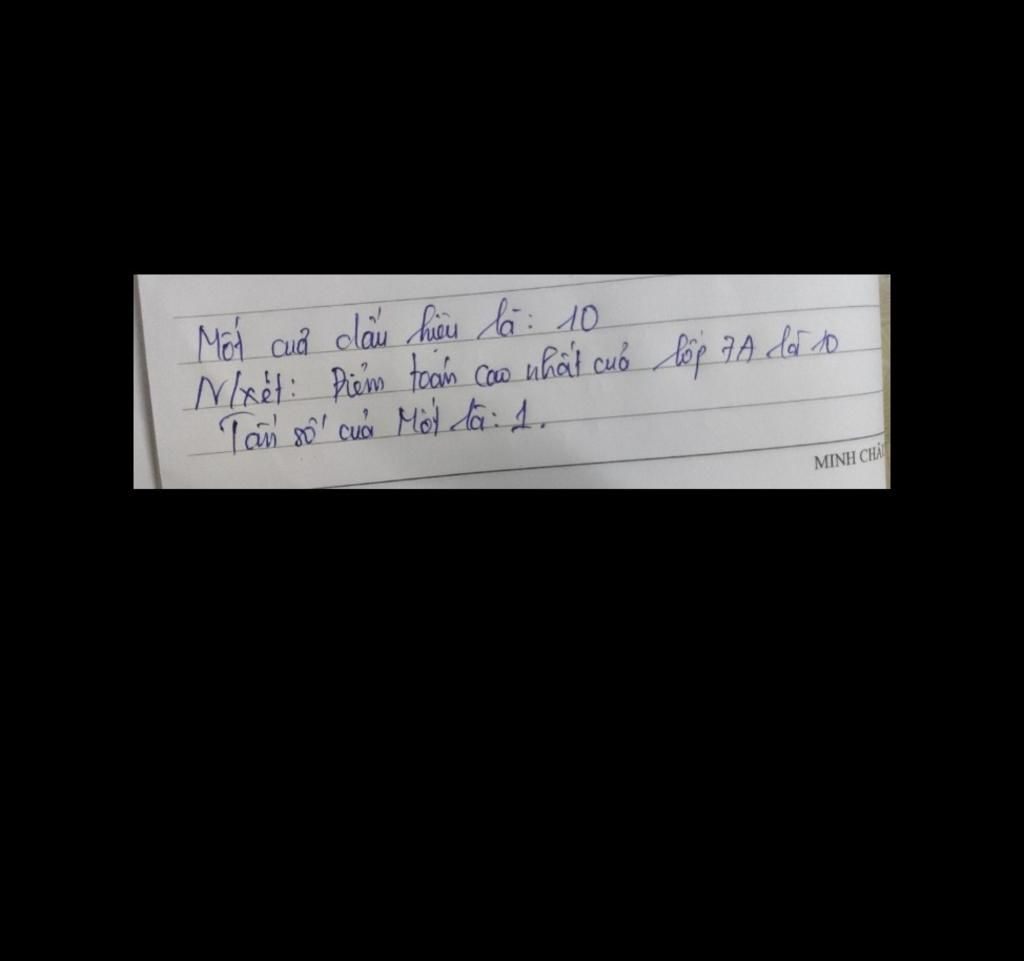 Mốt của dấu hiệu là: 10
N/xét: Điểm toán cao nhất của lớp 7A là 10
Tần số của Mốt là: 1.
MINH CHÂU